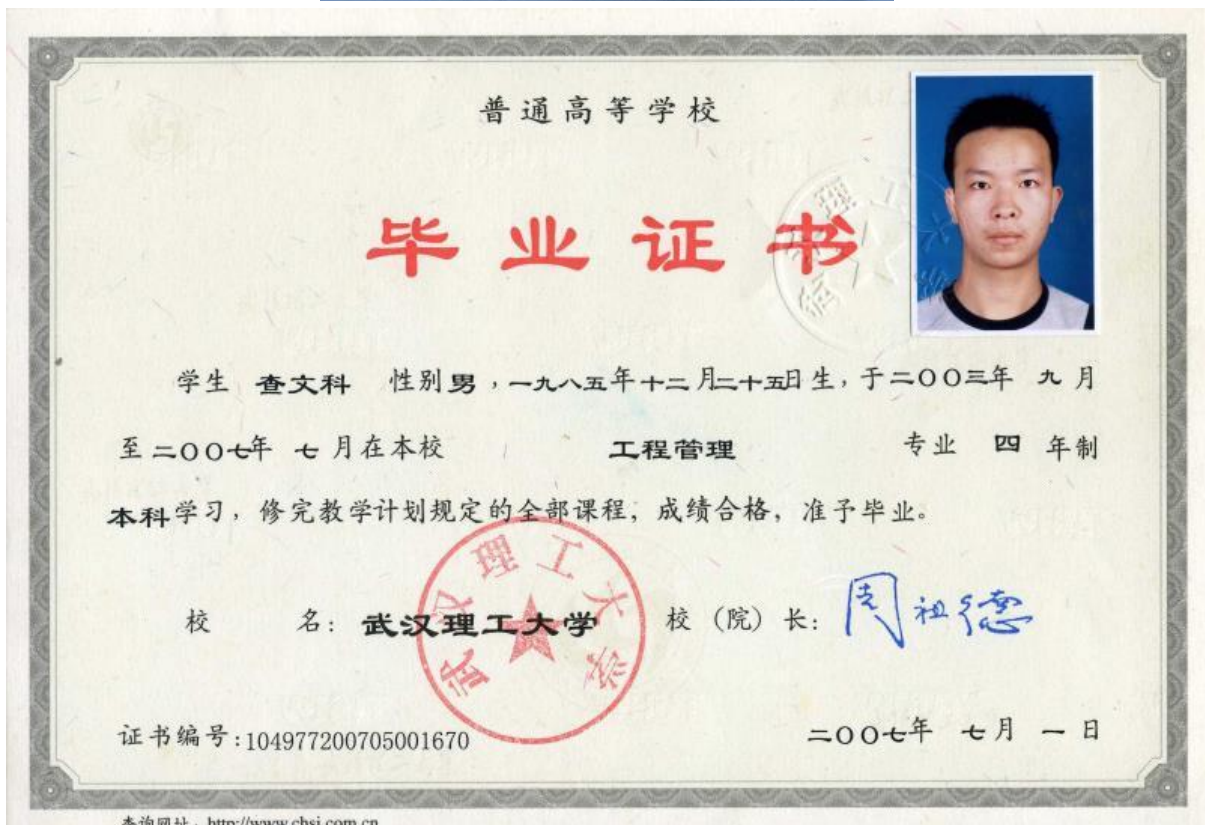 普通高等学校
毕业证书
学生 查文科 性别 男，一九八五年十二月二十五日生，于二〇〇三年 九月
至二〇〇七年 七月在本校 工程管理 专业 四 年制
本科学习，修完教学计划规定的全部课程，成绩合格，准予毕业。
校 名：武汉理工大学 校（院）长：周祖德
武汉理工大学
武汉理工大学
证书编号:104977200705001670 二〇〇七年 七月 一日
查询网址：http://www.chsi.com.cn